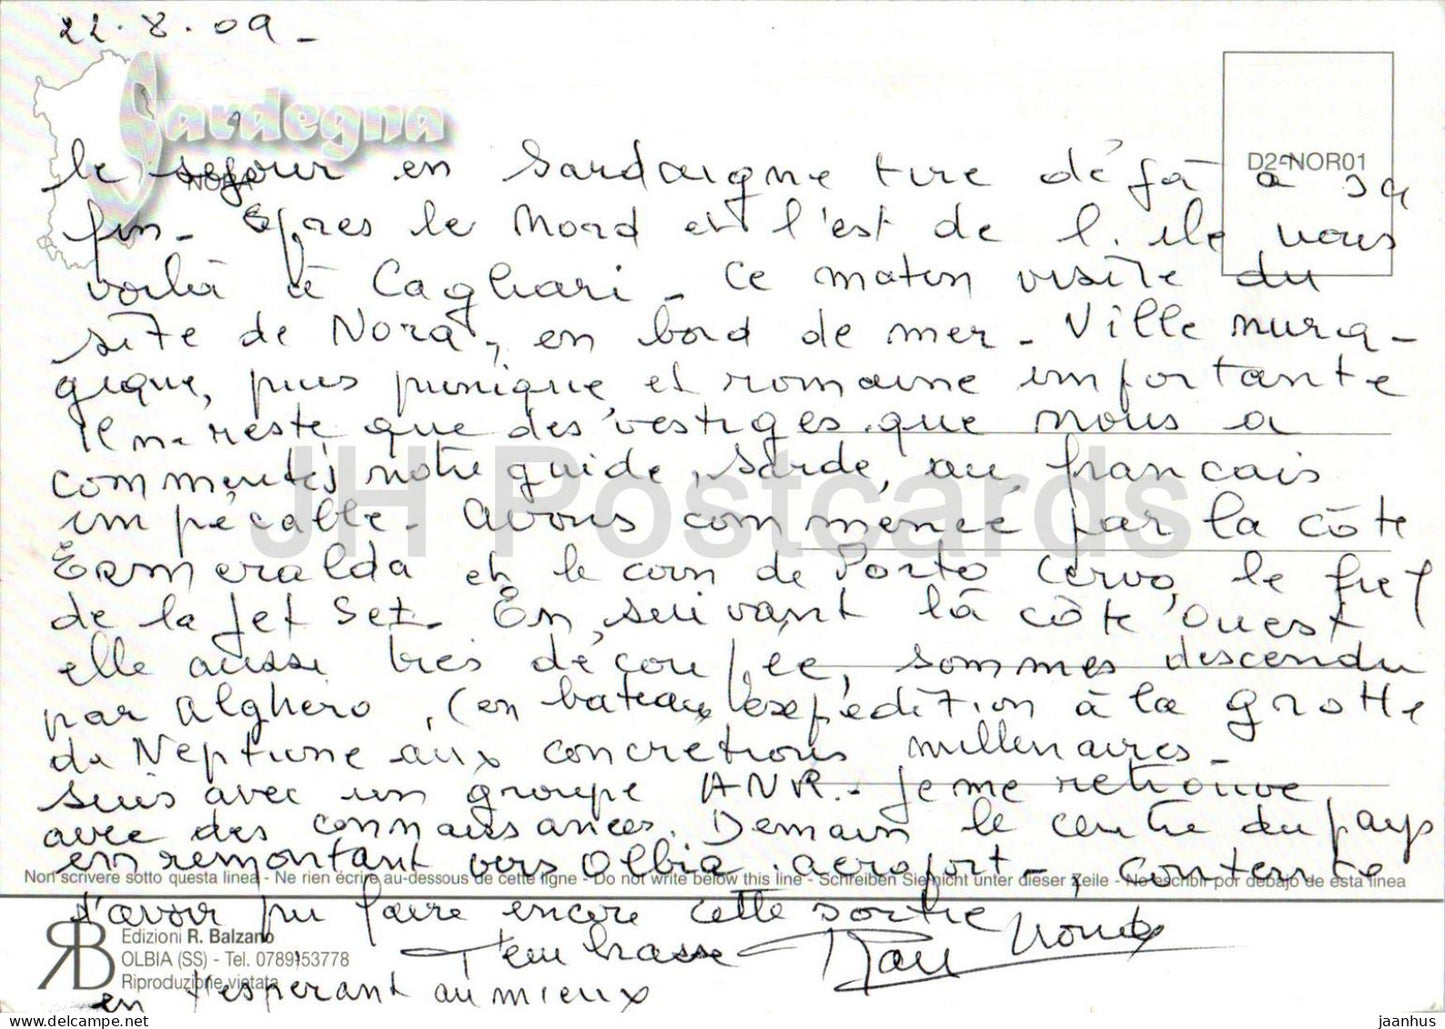 22.8.09 -
Sardegna
NORA
D2-NOR01
le séjour en Sardaigne tire déjà à sa
fin - Après le Nord et l'est de l'ile nous
voilà à Cagliari - Ce matin visite du
site de Nora, en bord de mer - Ville nurag-
gique, puis punique et romaine importante
Il n'reste que des vestiges que nous a
commentés notre guide, sarde, au français
impécable - Avons commencé par la côte
Esmeralda et le coin de Porto Cervo, le fief
de la Jet Set - En suivant la côte Ouest
elle aussi très découpée, sommes descendu
par Alghero, (en bateau) expédition à la grotte
de Neptune aux concretions millenaires -
suis avec un groupe ANR - Je me retrouve
avec des connaissances. Demain le centre du pays
en remontant vers Olbia aeroport - contente
Non scrivere sotto questa linea - Ne rien écrire au-dessous de cette ligne - Do not write below this line - Schreiben Sie nicht unter dieser Zeile - No escribir por debajo de esta linea
d'avoir pu faire encore cette sortie
RB Edizioni R. Balzano
OLBIA (SS) - Tel. 0789/53778
Riproduzione vietata
T'embrasse
en t'esperant au mieux
JH Postcards
www.delcampe.net
jaanhus